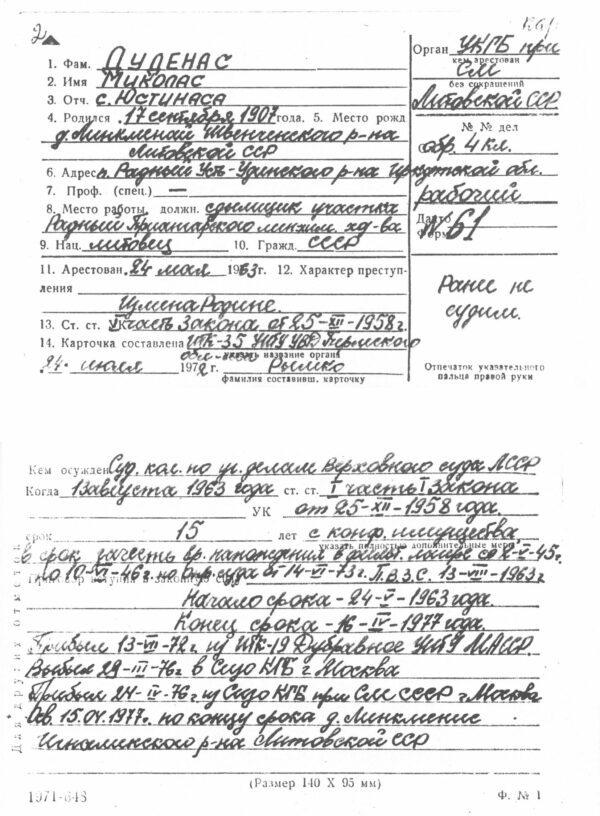 2
1. Фам. ДУДЕНАС
2. Имя МИКОЛАС
3. Отч. с. ЮСТИНАСА
4. Родился 17 сентября 1907 года. 5. Место рожд.
д. Минкменай Швенченского р-на
Литовской ССР
6. Адрес п. Радный Усть-Удинского р-на Иркутской обл.
7. Проф. (спец.) —
8. Место работы, должн. сдымщик участка
Радный Приангарского химлесх. хд-ва
9. Нац. литовец 10. Гражд. СССР
11. Арестован 24 мая 1963г. 12. Характер преступ-
ления
Измена Родине.
13. Ст. ст. часть Закона от 25-XII-1958 г.
14. Карточка составлена ИТК-35 УИТУ УВД Пермского
обл-
указать название органа
24 июля 1972 г. Рымко
фамилия составивш. карточку
Орган УКГБ при
кем арестован
СМ
без сокращений
Литовской ССР
№ № дел
обр. 4 кл.
рабочий
Дакто
Форм
№61
Ранее не
судим.
Отпечаток указательного
пальца правой руки
Кем осужден Суд. кол. по уг. делам Верховного суда ЛССР
Когда 13 августа 1963 года ст. ст. I часть I Закона
УК от 25-XII-1958 года.
срок 15 лет с конф. имущества
указать полностью дополнительные меры
в срок зачесть вр. нахождения в лагере со 2-V-45г.
по 10-VI-46г. по опр. суда от 14-VI-73г. П.В.З.С. 13-VIII-1963г
Начало срока - 24-V-1963 года.
Конец срока - 16-IV-1977 года.
Прибыл 13-VII-72г из ИТК-19 Дубравное УИТУ МАССР.
Выбыл 29-III-76г. в Сизо КГБ г Москва
Прибыл 24-IV-76г из Сизо КГБ при СМ СССР г Москва
Осв. 15.04.1977г. по концу срока д. Минкменис
Игналинского р-на Литовской ССР
Для других отметок
(Размер 140 X 95 мм)
1971-648
Ф. № 1